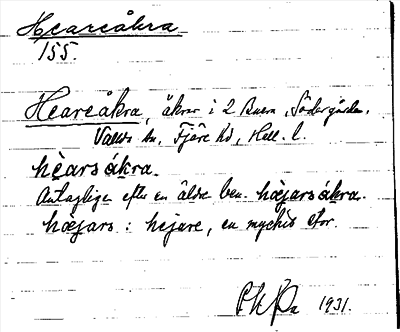 Heareåkra
155.
Heareåkra, åkrar i 2 Buera, Södergården,
Vallda sn, Fjäre hd, Hall. l.
hèarsákra.
Antagligen efter en äldre ben. hæjarsákra.
hæjars: hejare, en mycket stor.
1931.